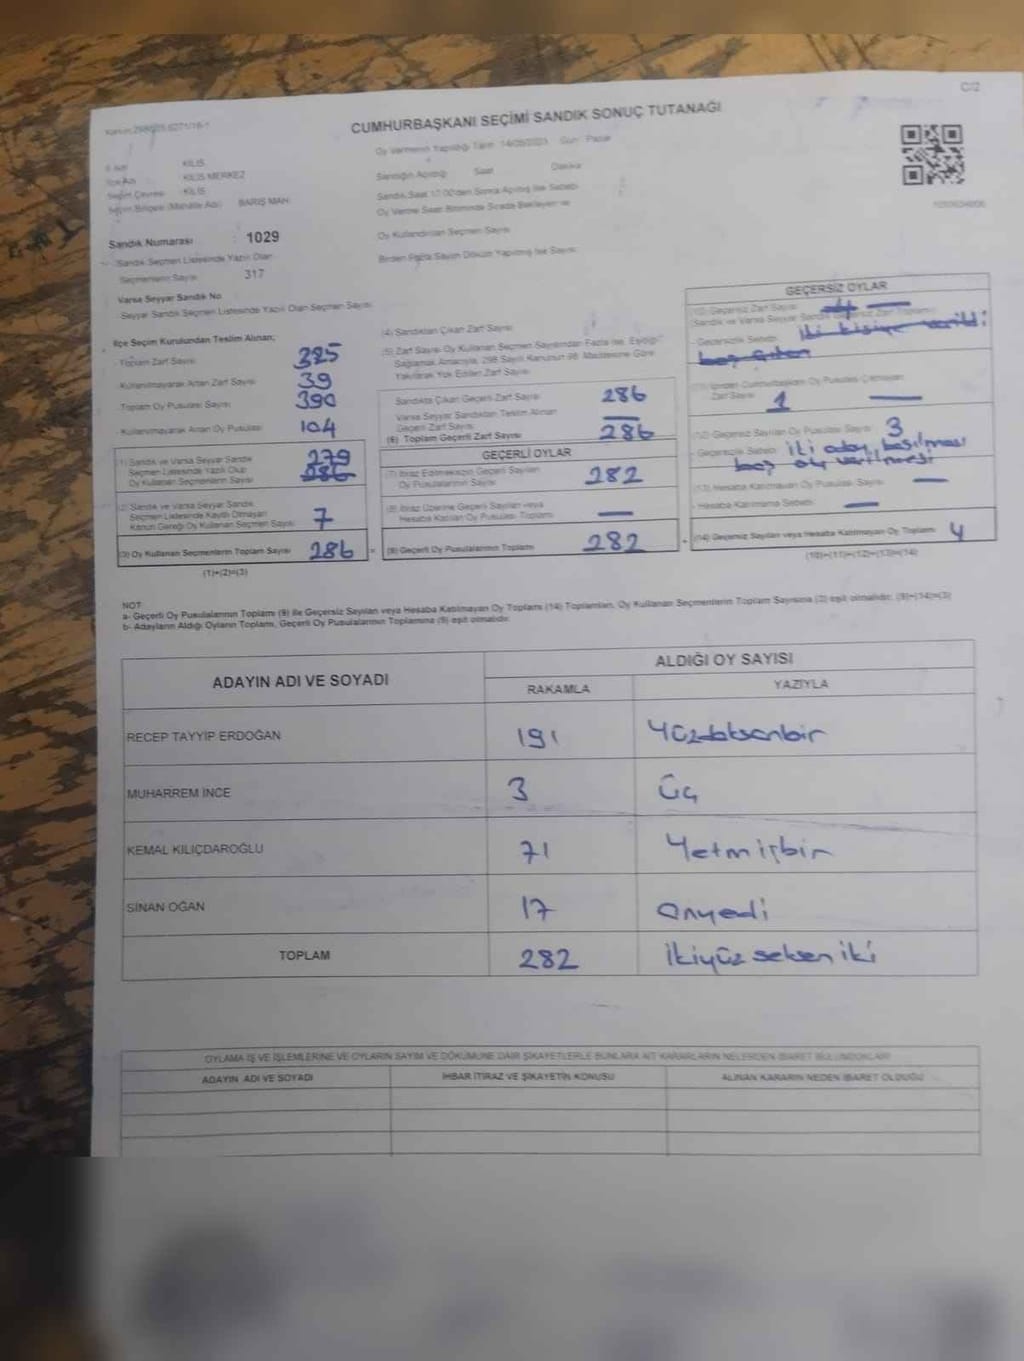 C/2
CUMHURBAŞKANI SEÇİMİ SANDIK SONUÇ TUTANAĞI
Oy Vermenin Yapıldığı Tarih 14/05/2023 Gün Pazar
KİLİS
İlçe Adı KİLİS MERKEZ
Seçim Çevresi KİLİS
Seçim Bölgesi (Mahalle Adı) BARIŞ MAH.
Sandığın Açıldığı Saat Dakika
Sandık Saat 17.00'den Sonra Açılmış İse Sebebi
Oy Verme Saati Bitiminde Sırada Bekleyen ve
Oy Kullandırılan Seçmen Sayısı
Birden Fazla Sayım Döküm Yapılmış İse Sayısı
Sandık Numarası 1029
Sandık Seçmen Listesinde Yazılı Olan
Seçmenlerin Sayısı 317
Varsa Seyyar Sandık No
Seyyar Sandık Seçmen Listesinde Yazılı Olan Seçmen Sayısı
İlçe Seçim Kurulundan Teslim Alınan;
Toplam Zarf Sayısı 325
Kullanılmayarak Artan Zarf Sayısı 39
Toplam Oy Pusulası Sayısı 390
Kullanılmayarak Artan Oy Pusulası 104
(1) Sandık ve Varsa Seyyar Sandık
Seçmen Listesinde Yazılı Olup
Oy Kullanan Seçmenlerin Sayısı 279 286
(2) Sandık ve Varsa Seyyar Sandık
Seçmen Listesinde Kayıtlı Olmayan
Kanun Gereği Oy Kullanan Seçmen Sayısı 7
(3) Oy Kullanan Seçmenlerin Toplam Sayısı 286
(1)+(2)=(3)
(4) Sandıktan Çıkan Zarf Sayısı
(5) Zarf Sayısı Oy Kullanan Seçmen Sayısından Fazla İse, Eşitliği
Sağlamak Amacıyla, 298 Sayılı Kanunun 98. Maddesine Göre
Yakılarak Yok Edilen Zarf Sayısı
Sandıkta Çıkan Geçerli Zarf Sayısı 286
Varsa Seyyar Sandıktan Teslim Alınan
Geçerli Zarf Sayısı
(6) Toplam Geçerli Zarf Sayısı 286
GEÇERLİ OYLAR
(7) İtiraz Edilmeksizin Geçerli Sayılan
Oy Pusulalarının Sayısı 282
(8) İtiraz Üzerine Geçerli Sayılan veya
Hesaba Katılan Oy Pusulası Toplamı
(9) Geçerli Oy Pusulalarının Toplamı 282
GEÇERSİZ OYLAR
(10) Geçersiz Zarf Sayısı
Geçersizlik Sebebi
Zarf Sayısı 1
(12) Geçersiz Sayılan Oy Pusulası Sayısı 3
Geçersizlik Sebebi iki aday basılması
boş oy verilmesi
(13) Hesaba Katılmayan Oy Pusulası Sayısı
Hesaba Katılmama Sebebi
(14) Geçersiz Sayılan veya Hesaba Katılmayan Oy Toplamı 4
(10)+(11)+(12)+(13)=(14)
NOT:
a- Geçerli Oy Pusulalarının Toplamı (9) ile Geçersiz Sayılan veya Hesaba Katılmayan Oy Toplamı (14) Toplamları, Oy Kullanan Seçmenlerin Toplam Sayısına (3) eşit olmalıdır. (9)+(14)=(3)
b- Adayların Aldığı Oyların Toplamı, Geçerli Oy Pusulalarının Toplamına (9) eşit olmalıdır.
ADAYIN ADI VE SOYADI ALDIĞI OY SAYISI
RAKAMLA YAZIYLA
RECEP TAYYİP ERDOĞAN 191 Yüzdoksanbir
MUHARREM İNCE 3 Üç
KEMAL KILIÇDAROĞLU 71 Yetmişbir
SİNAN OĞAN 17 Onyedi
TOPLAM 282 İkiyüz seksen iki
OYLAMA İŞ VE İŞLEMLERİNE VE OYLARIN SAYIM VE DÖKÜMÜNE DAİR ŞİKAYETLERLE BUNLARA AİT KARARLARIN NELERDEN İBARET BULUNDUKLARI
ADAYIN ADI VE SOYADI İHBAR İTİRAZ VE ŞİKAYETİN KONUSU ALINAN KARARIN NEDEN İBARET OLDUĞU